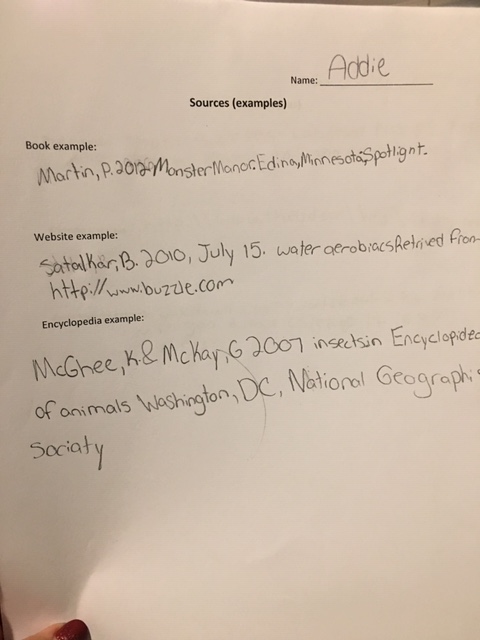 Name: Addie
Sources (examples)
Book example:
Martin, P. 2012 Monster Manor. Edina, Minnesota; Spotlight.
Website example:
Satalkar, B. 2010, July 15. water aerobiacs Retrived from
http://www.buzzle.com
Encyclopedia example:
McGhee, K & McKay, G 2007 insects in Encyclopidea
of animals Washington, DC, National Geographi
Sociaty